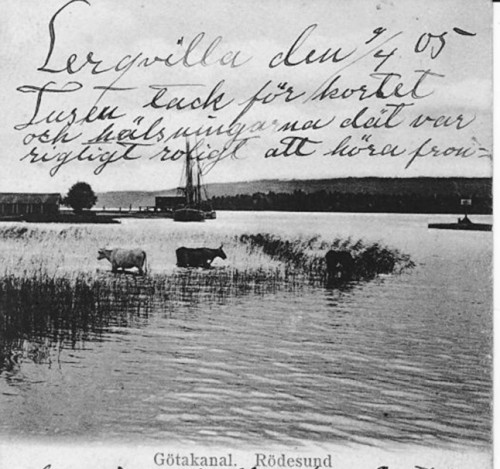 Lergvilla den 9/4 05
Tusen tack för kortet
och hälsningarna dät var
rigtigt roligt att höra från
Götakanal. Rödesund